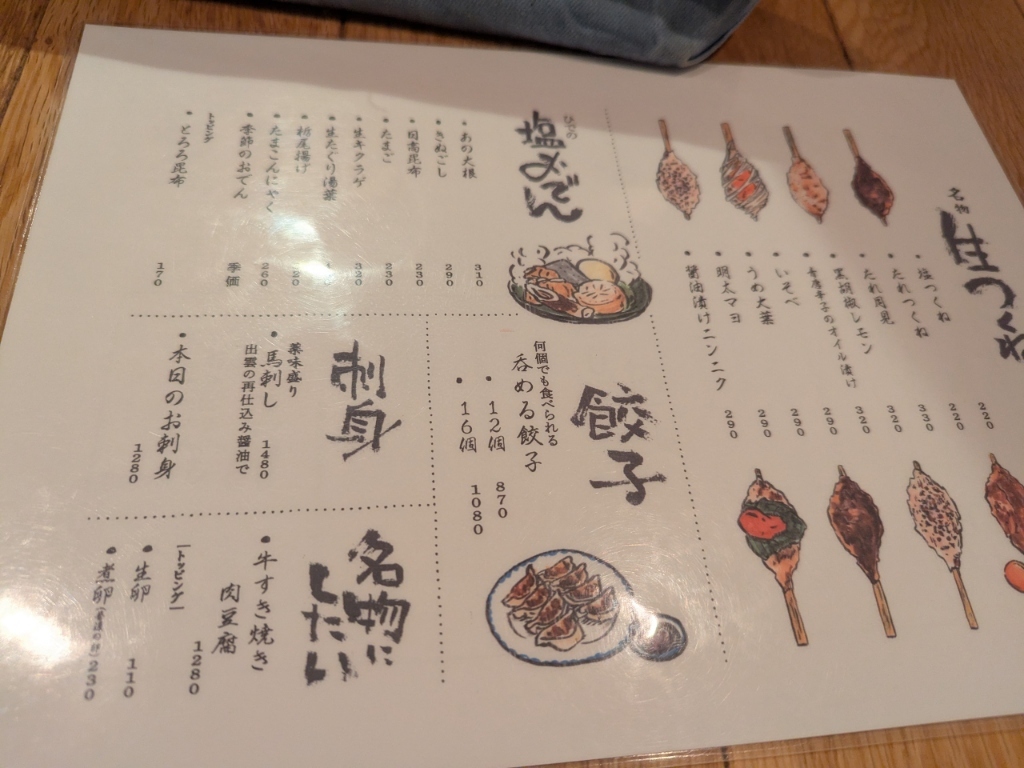 名物
生つくね
塩つくね 220
たれつくね 220
たれ月見 330
黒胡椒レモン 320
青唐辛子のオイル漬け 320
いそべ 290
うめ大葉 290
明太マヨ 290
醤油漬けニンニク 290
塩おでん
あの大根 310
きぬごし 290
日高昆布 230
たまご 230
生キクラゲ 320
生たぐり湯葉
栃尾揚げ
たまこんにゃく 260
季節のおでん 季価
トッピング
とろろ昆布 170
餃子
何個でも食べられる
呑める餃子
12個 870
16個 1080
刺身
薬味盛り
馬刺し 1480
出雲の再仕込み醤油で
本日のお刺身 1280
名物に
したい
牛すき焼き
肉豆腐 1280
【トッピング】
生卵 110
煮卵 230